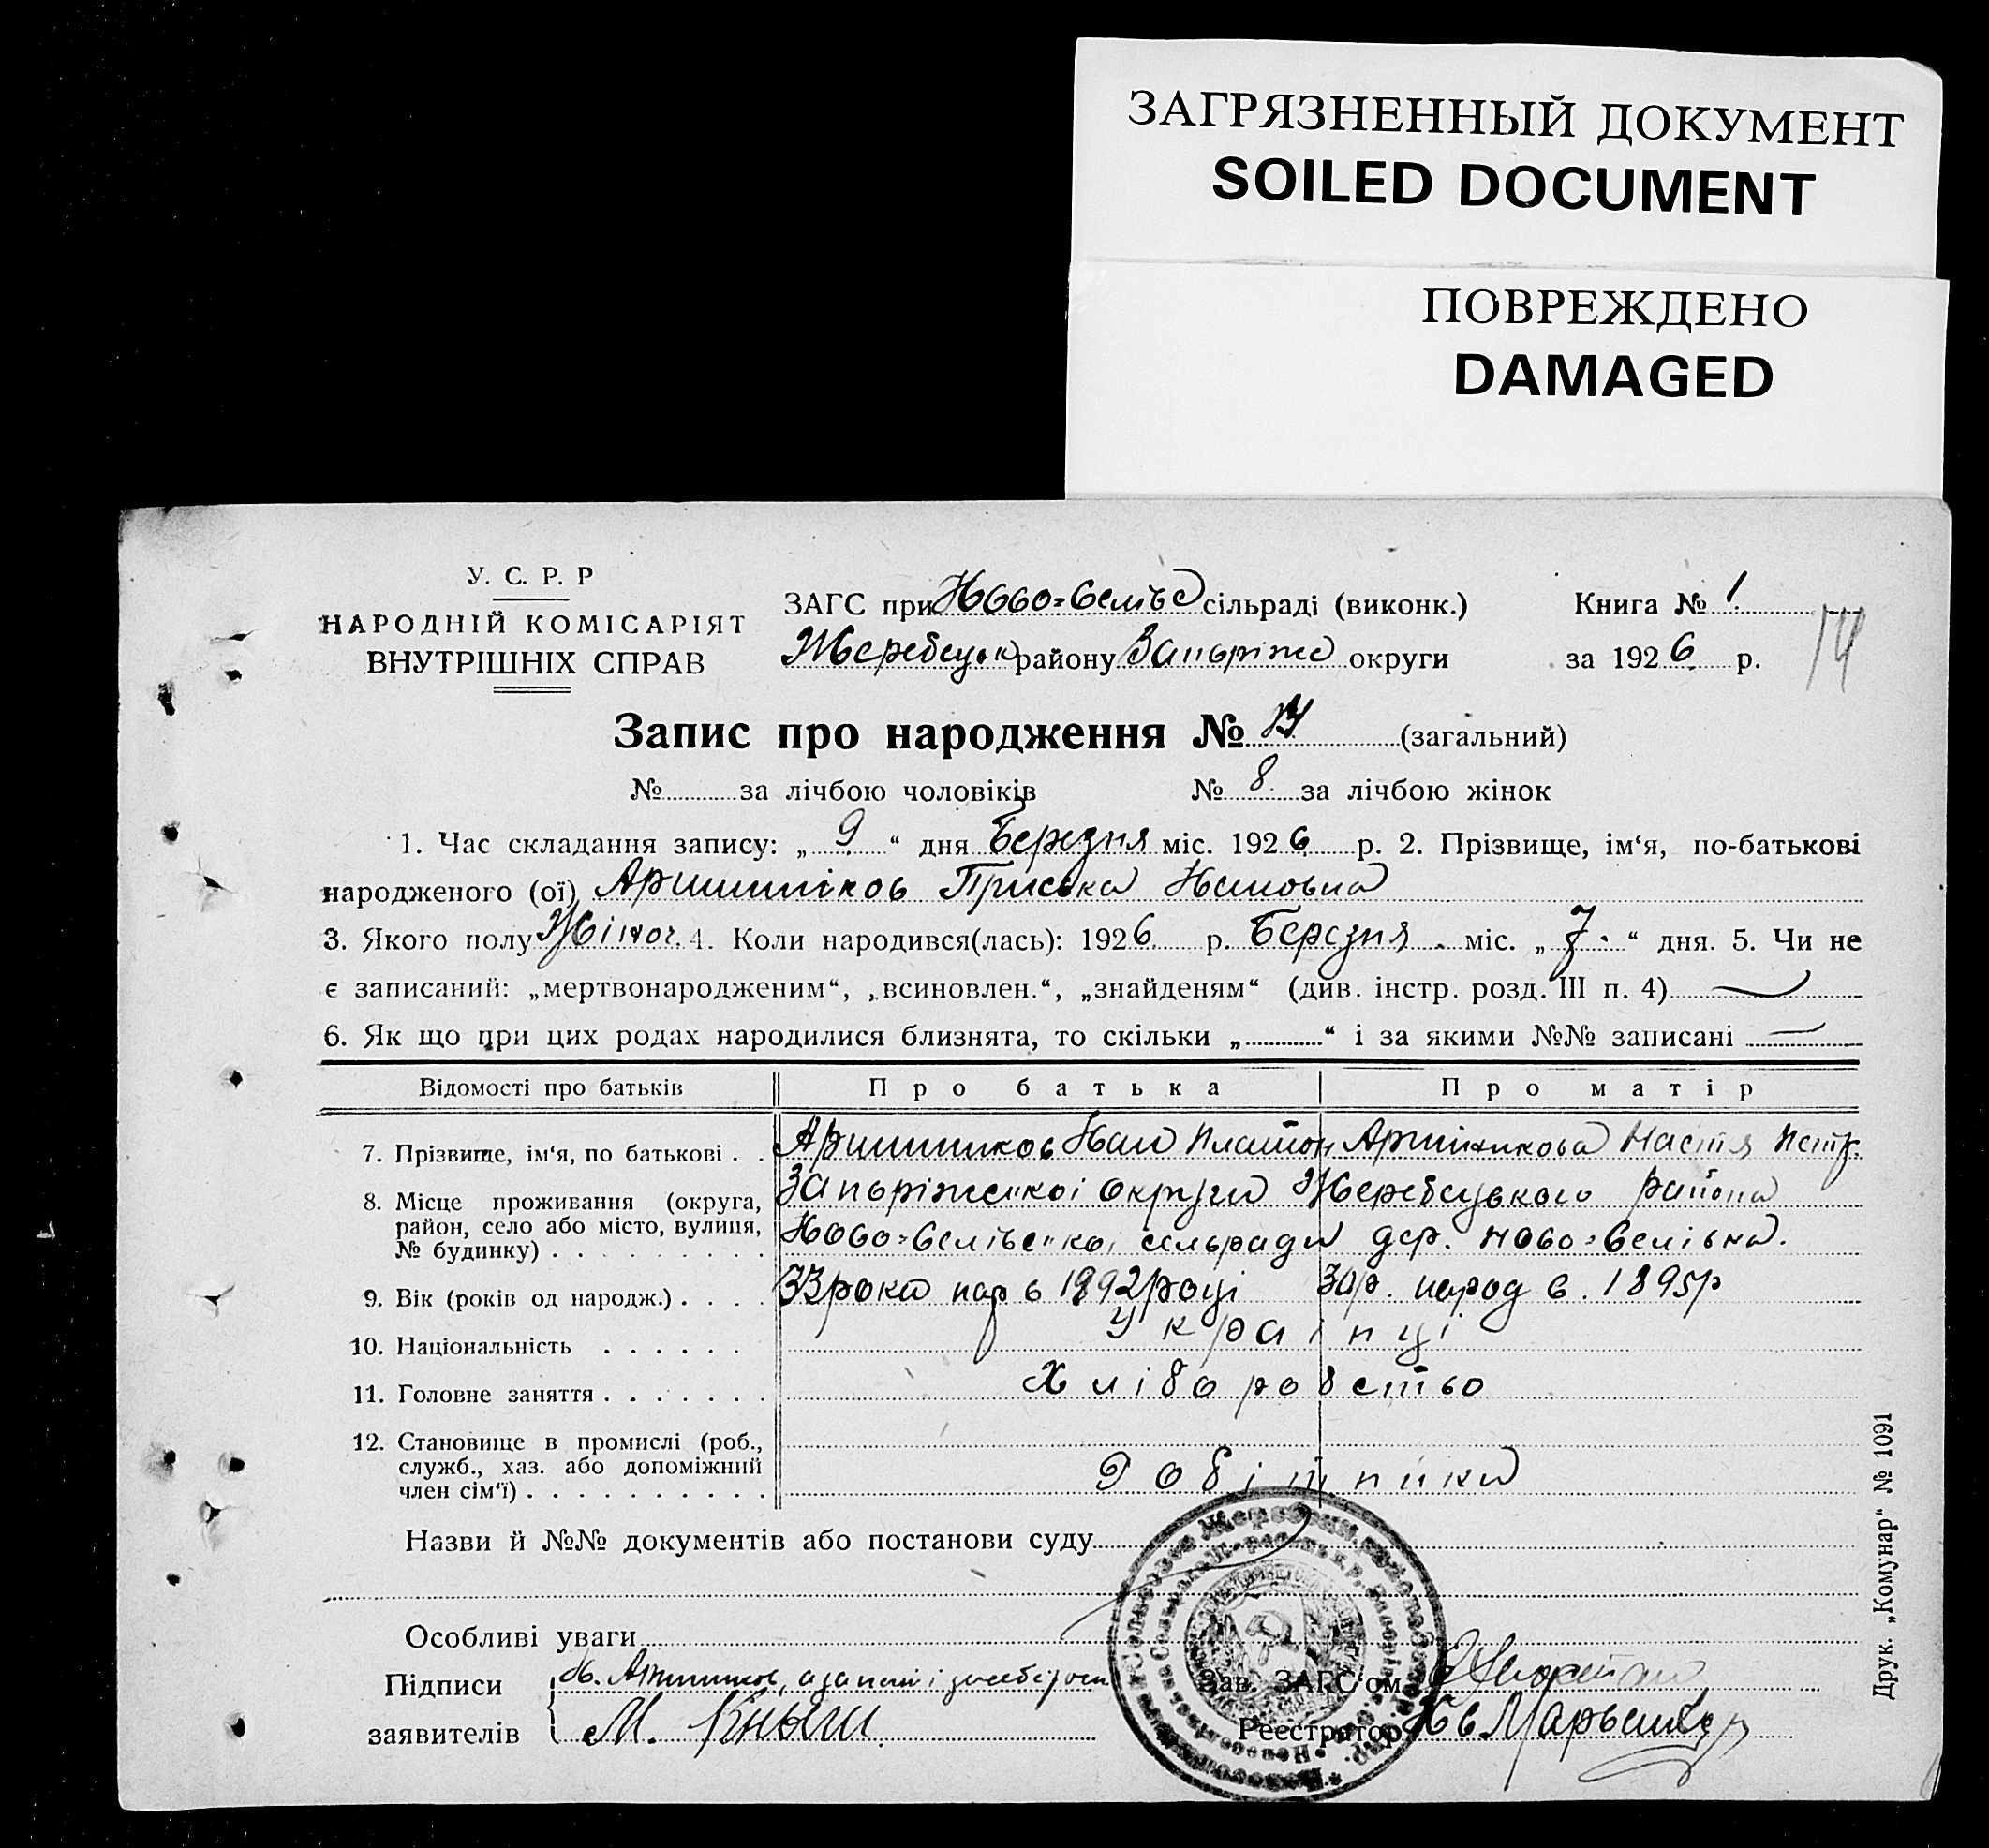 ЗАГРЯЗНЕННЫЙ ДОКУМЕНТ
SOILED DOCUMENT
ПОВРЕЖДЕНО
DAMAGED
У. С. Р. Р
НАРОДНІЙ КОМІСАРІЯТ
ВНУТРІШНІХ СПРАВ
ЗАГС при сільраді (виконк.)
Жеребецьк району Запоріж округи
Книга № 1
за 1926 р.
14
Запис про народження № (загальний)
№ за лічбою чоловіків № 8 за лічбою жінок
1. Час складання запису: „ 9 “ дня Березня міс. 1926 р. 2. Прізвище, ім‘я, по-батькові
народженого (ої) Приська
3. Якого полу Жіноч. 4. Коли народився(лась): 1926 р. Березня міс. „ 7 “ дня. 5. Чи не
є записаний: „мертвонародженим“, „всиновлен.“, „знайденям“ (див. інстр. розд. III п. 4)
6. Як що при цих родах народилися близнята, то скільки „ “ і за якими №№ записані —
Відомості про батьків Про батька Про матір
7. Прізвище, ім‘я, по батькові . . Платон Настя Петр.
8. Місце проживання (округа, район, село або місто, вулиця, № будинку) . . . . . . . . .
Жеребецького района
сельради дер.
9. Вік (років од народж.) . . . . 33 рока нар в 1892 році 30 р. народ в. 1895 р
10. Національність . . . . . . Українці
11. Головне заняття . . . . . . . Хліборобство
12. Становище в промислі (роб., служб., хаз. або допоміжний член сім‘ї) . . . . . . . . . . Робітники
Назви й №№ документів або постанови суду
Особливі уваги
Підписи
заявителів
М.
Зав. ЗАГС‘ом
Реєстратор
Друк. „Комунар“ № 1091